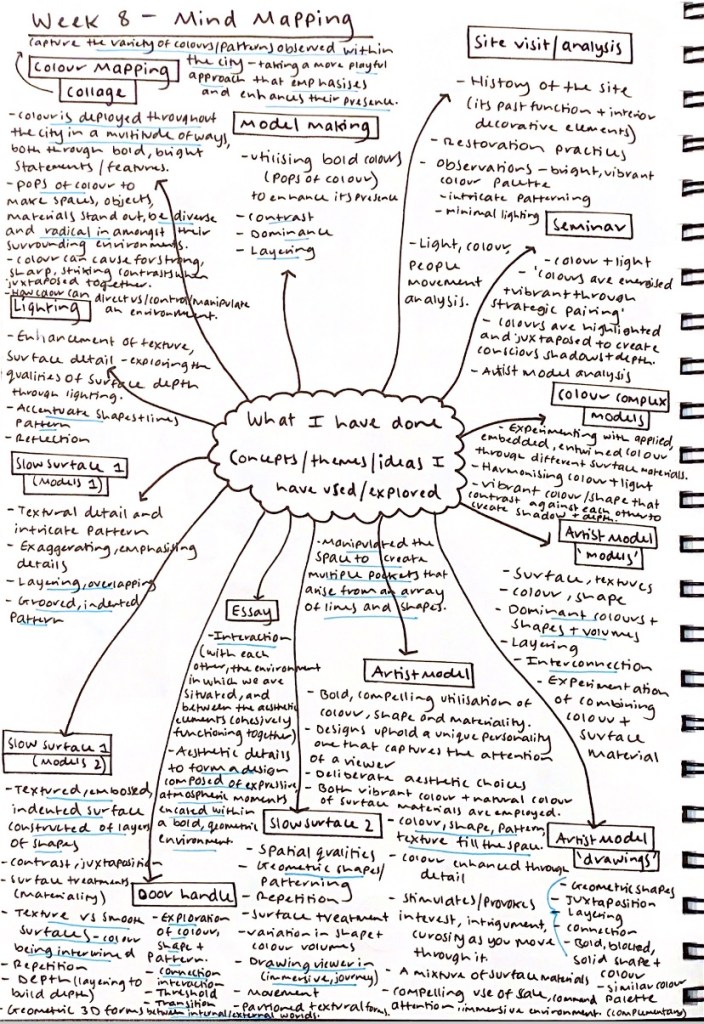 Week 8 - Mind Mapping
Capture the variety of colours/patterns observed within
the city - taking a more playful
approach that emphasises
and enhances their presence.
Colour Mapping
Collage
- Colour is deployed throughout
the city in a multitude of ways,
both through bold, bright
statements / features.
- pops of colour to
make spaces, objects,
materials stand out, be diverse
and radical in amongst their
surrounding environments.
- colour can cause for strong,
sharp, striking contrasts when
juxtaposed together.
- How colour can direct us/control/manipulate
an environment.
Model making
- utilising bold colours
(pops of colour)
to enhance its presence
- Contrast
- Dominance
- Layering
Site visit/analysis
- History of the site
(its past function + interior
decorative elements)
- Restoration practices
- Observations - bright, vibrant
colour palette
- intricate patterning
- minimal lighting
- Light, colour,
people
movement
analysis.
Seminar
- colour + light
- 'colours are energised
+ vibrant through
strategic pairing'
- colours are highlighted
and juxtaposed to create
conscious shadows + depth.
- Artist Model analysis
Lighting
- Enhancement of texture,
surface detail - exploring the
qualities of surface depth
through lighting.
- Accentuate shapes + lines
pattern
- Reflection
What I have done
Concepts/themes/ideas I
have used/explored
Colour complex
models
- Experimenting with applied,
embedded, entwined colour
through different surface materials.
- Harmonising colour + light
- vibrant colour/shape that
contrast against each other to
create shadow + depth.
Slow surface 1
(Models 1)
- Textural detail and
intricate pattern
- Exaggerating, emphasising
details
- Layering, overlapping
- Grooved, indented
pattern
Artist model
'models'
- Surface, textures
- colour, shape
- Dominant colours +
shapes + volumes
- Layering
- Interconnection
- Experimentation
of combining
colour +
surface
material
- Manipulated the
space to create
multiple pockets that
arise from an array
of lines and shapes.
Essay
- Interaction
(with each
other, the environment
in which we are
situated, and
between the aesthetic
elements cohesively
functioning together)
- Aesthetic details
to form a design
composed of expressive,
atmospheric moments
encased within
a bold, geometric
environment
Artist Model
- Bold, compelling utilisation of
colour, shape and materiality.
- Designs uphold a unique personality
one that captures the attention
of a viewer
- Deliberate aesthetic choices
- Both vibrant colour + natural colour
of surface materials are employed.
- colour, shape, pattern,
texture fill the space.
- colour enhanced through
detail
- stimulates/provokes
interest, intrigument,
curosity as you move
through it
- A mixture of surface materials
- compelling use of scale, command
attention, immersive environment
Slow surface 1
(Models 2)
- Textured, embossed,
indented surface
constructed of layers
of shapes
- contrast, juxtaposition
- surface treatments
(materiality)
- Texture vs smooth
surfaces - colour
being intermined
- Repetition
- Depth (layering to
build depth)
- Geometric 3D forms
Door handle
- Exploration
of colour,
shape +
pattern.
- connection
interaction
- Threshold
- Transition
between internal/external worlds.
Slow surface 2
- Spatial qualities
- Geometric shapes/
patterning
- Repetition
- Surface treatment
- variation in shape +
colour volumes
- Drawing viewer in
(immersive, journey)
- Movement
- Patterned textural forms.
Artist Model
'drawings'
- Geometric shapes
- Juxtaposition
- Layering
- connection
- Bold, blocked,
solid shape +
colour
- similar colour
palette
(complementary)